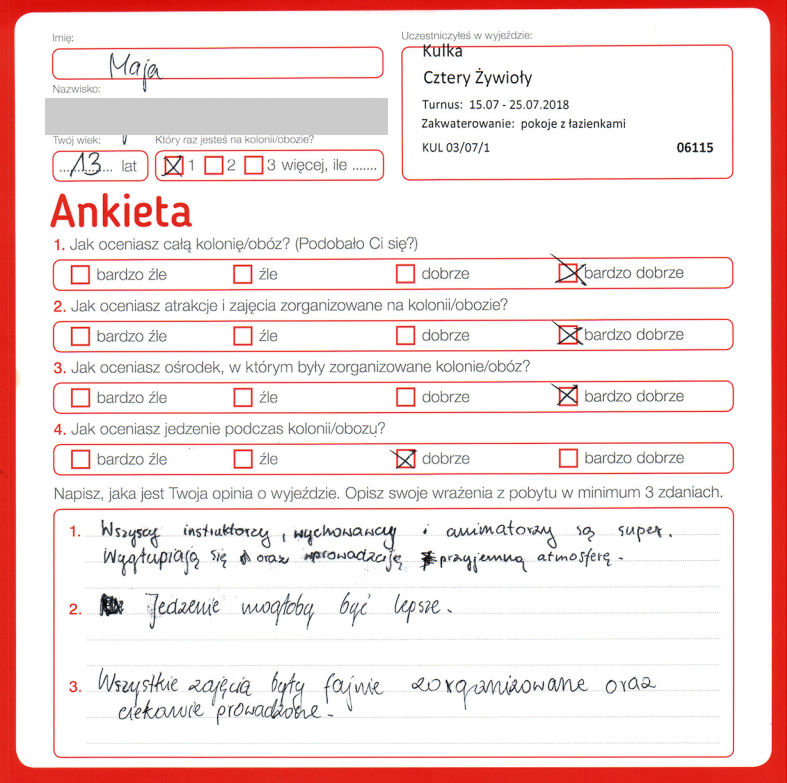 Imię:
Maja
Nazwisko:
Twój wiek:
13 lat
Który raz jesteś na kolonii/obozie?
1 2 3 więcej, ile .......
Uczestniczyłeś w wyjeździe:
Kulka
Cztery Żywioły
Turnus: 15.07 - 25.07.2018
Zakwaterowanie: pokoje z łazienkami
KUL 03/07/1 06115
Ankieta
1. Jak oceniasz całą kolonię/obóz? (Podobało Ci się?)
bardzo źle źle dobrze bardzo dobrze
2. Jak oceniasz atrakcje i zajęcia zorganizowane na kolonii/obozie?
bardzo źle źle dobrze bardzo dobrze
3. Jak oceniasz ośrodek, w którym były zorganizowane kolonie/obóz?
bardzo źle źle dobrze bardzo dobrze
4. Jak oceniasz jedzenie podczas kolonii/obozu?
bardzo źle źle dobrze bardzo dobrze
Napisz, jaka jest Twoja opinia o wyjeździe. Opisz swoje wrażenia z pobytu w minimum 3 zdaniach.
1. Wszyscy instruktorzy, wychowawcy i animatorzy są super.
Wygłupiają się oraz wprowadzają przyjemną atmosferę.
2. Jedzenie mogłoby być lepsze.
3. Wszystkie zajęcia były fajnie zorganizowane oraz
ciekawie prowadzone.